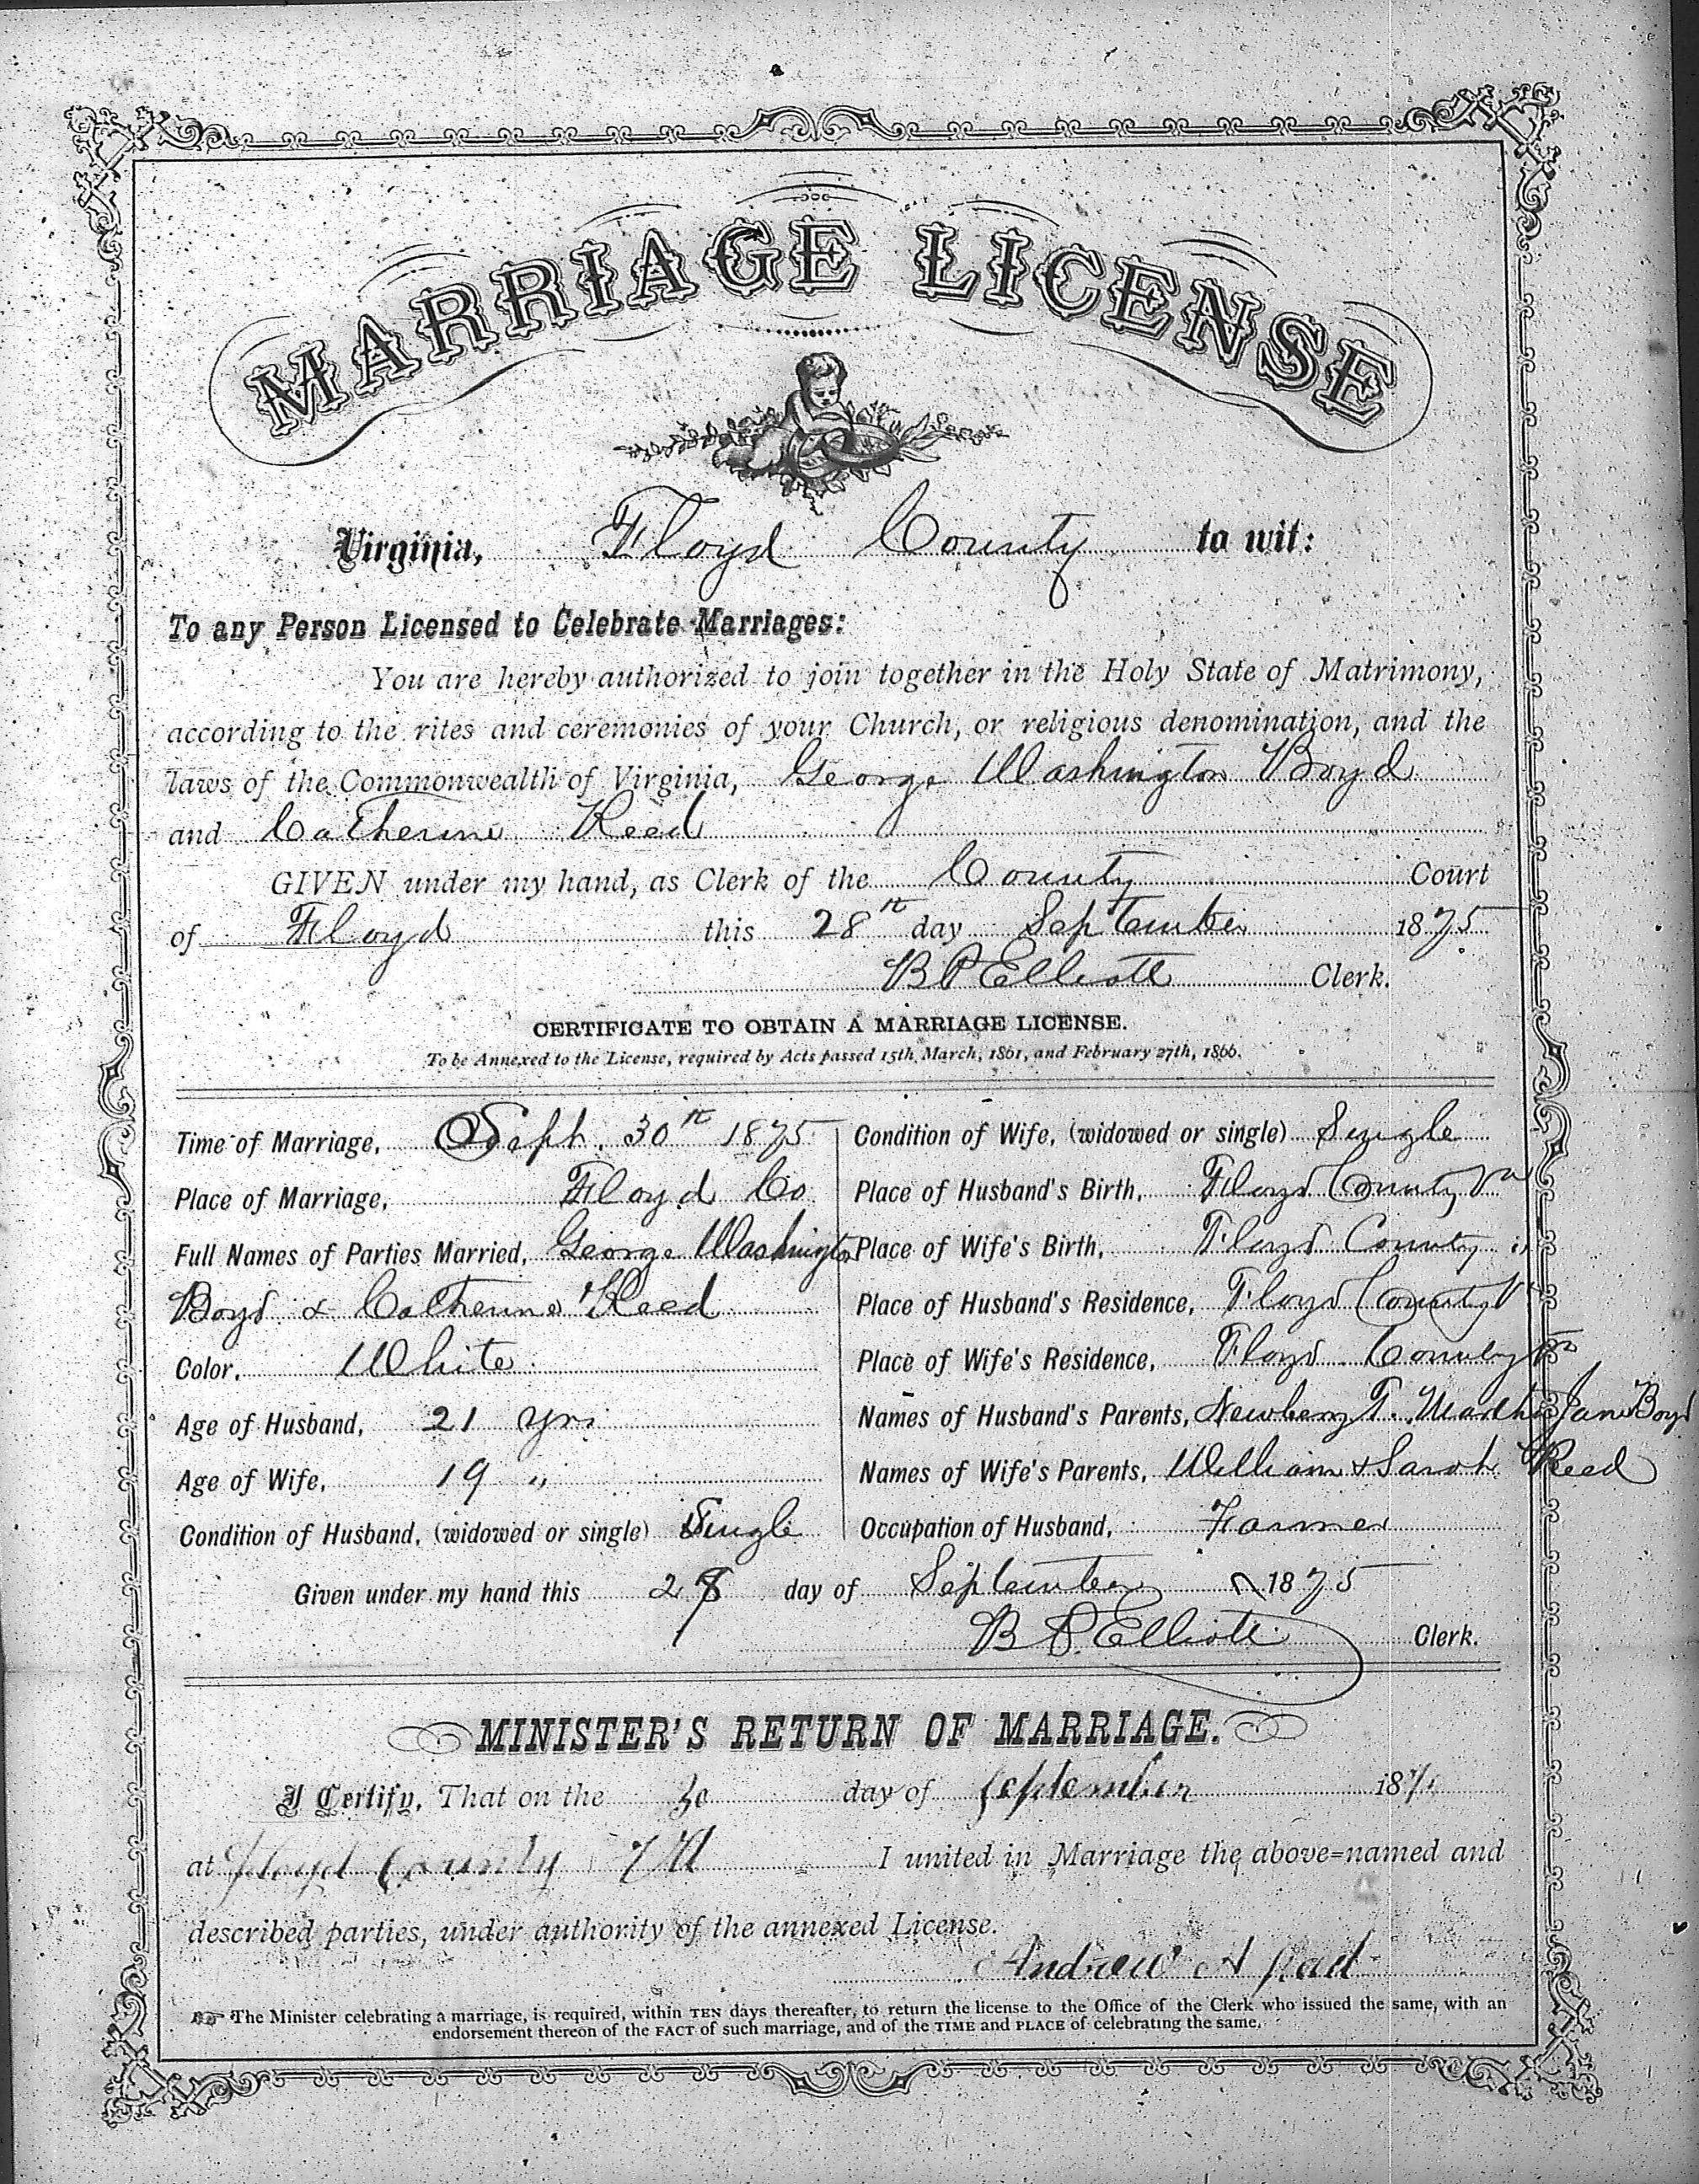 MARRIAGE LICENSE
Virginia, Floyd County to wit:
To any Person Licensed to Celebrate Marriages:
You are hereby authorized to join together in the Holy State of Matrimony,
according to the rites and ceremonies of your Church, or religious denomination, and the
laws of the Commonwealth of Virginia, George Washington Boyd
and Catherine Reed
GIVEN under my hand, as Clerk of the County Court
of Floyd this 28th day September 1875
B P Elliott Clerk.
CERTIFICATE TO OBTAIN A MARRIAGE LICENSE.
To be Annexed to the License, required by Acts passed 15th March, 1861, and February 27th, 1866.
Time of Marriage, Sept. 30th 1875
Place of Marriage, Floyd Co
Full Names of Parties Married, George Washington
Boyd & Catherine Reed
Color, White
Age of Husband, 21 yrs
Age of Wife, 19 "
Condition of Husband, (widowed or single) Single
Condition of Wife, (widowed or single) Single
Place of Husband's Birth, Floyd County Va
Place of Wife's Birth, Floyd County "
Place of Husband's Residence, Floyd County V
Place of Wife's Residence, Floyd County Va
Names of Husband's Parents, Newberry T. Martha Jane Boyd
Names of Wife's Parents, William & Sarah Reed
Occupation of Husband, Farmer
Given under my hand this 28 day of September 1875
B P. Elliott Clerk.
MINISTER'S RETURN OF MARRIAGE.
I Certify, That on the 30 day of September 187
at Floyd County VA I united in Marriage the above-named and
described parties, under authority of the annexed License.
Andrew A
The Minister celebrating a marriage, is required, within TEN days thereafter, to return the license to the Office of the Clerk who issued the same, with an
endorsement thereon of the FACT of such marriage, and of the TIME and PLACE of celebrating the same.